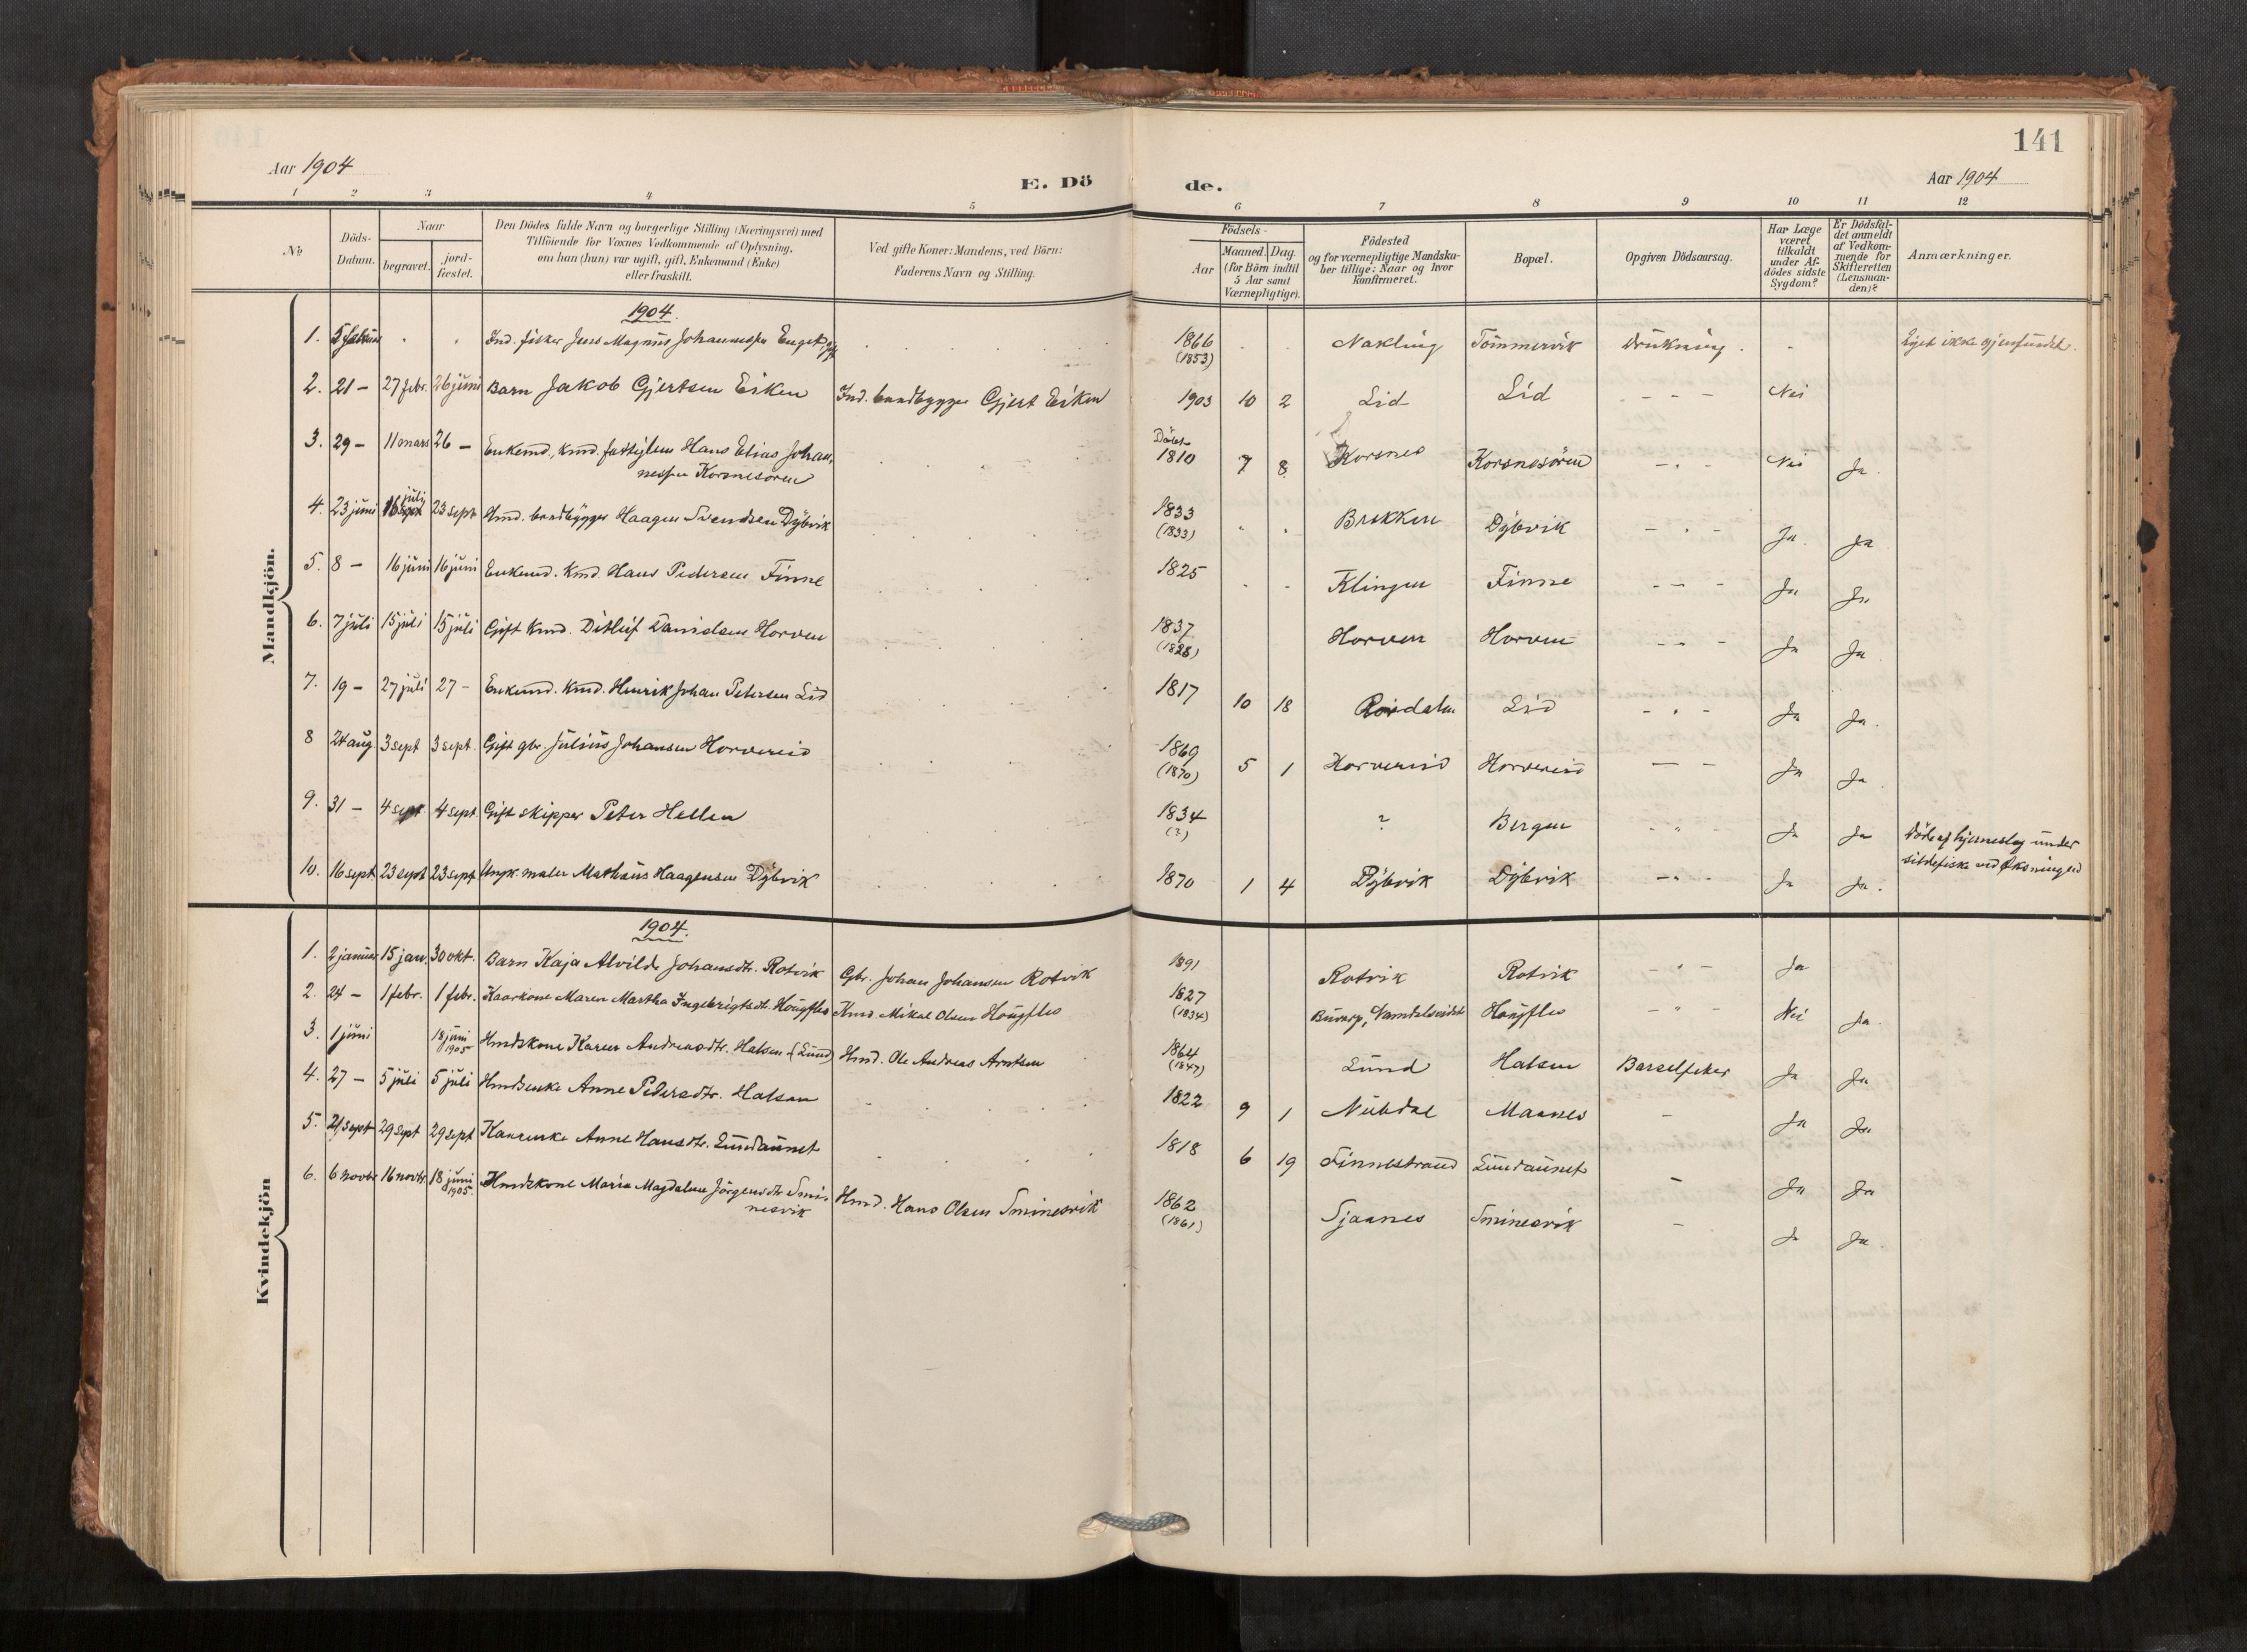 141
Aar 1904
E. Dö de.
Aar 1904
1 2 3 4 5 6 7 8 9 10 11 12
No
Döds-
Datum.
Naar
begravet.
jord-
fæstet.
Den Dödes fulde Navn og borgerlige Stilling (Næringsvei) med
Tilföiende for Voxnes Vedkommende af Oplysning,
om han (hun) var ugift, gift, Enkemand (Enke)
eller fraskilt.
Ved gifte Koner: Mandens, ved Börn:
Faderens Navn og Stilling.
Födsels-
Aar
Maaned. Dag.
(for Börn indtil
5 Aar samt
Værnepligtige).
Födested
og for værnepligtige Mandska-
ber tillige: Naar og hvor
konfirmeret.
Bopæl.
Opgiven Dödsaarsag.
Har Læge
været
tilkaldt
under Af-
dödes sidste
Sygdom?
Er Dödsfal-
det anmeldt
af Vedkom-
mende for
Skifteretten
(Lensman-
den)?
Anmærkninger.
Mandkjön.
1904.
1. 5 februar " " Ind. fisker Jens Magnus Johannessen Enget, 1866 Nakling Tömmervik Drukning. Liget ikke gjenfundet.
(1853)
2. 21 – 27 febr. 26 juni Barn Jakob Gjertsen Eiken Ind. brudbygger Gjert Eiken 1903 10 2 Lid Lid – – – Nei
3. 29 – 11 mars 26 – Enkemd., kmd. fattiglem Hans Elias Johan- Döbt 1810 7 8 Korsnes Korsnesören – " – Nei Ja.
nessen Korsnesören
4. 23 juni 16 juli 23 sept Hmd. brudbygger Haagen Svendsen Dybvik 1833 " " Brekken Dybvik – " – Ja. Ja
(1833)
5. 8 – 16 juni 16 juni Enkemd. Kmd. Hans Pedersen Finne 1825 - - Klingen Finne – – – Ja Ja
6. 7 juli 15 juli 15 juli Gift Kmd. Ditlef Danielsen Horven 1837 Horven Horven – – – Ja Ja
(1828)
7. 19 – 27 juli 27 – Enkemd. Kmd. Henrik Johan Petersen Lid 1817 10 18 Lid – " – Ja Ja.
8 24 aug 3 sept 3 sept. Gift gbr. Julius Johansen Horvereid 1869 5 1 Horvereid Horvereid – – Ja Ja.
(1870)
9. 31 – 4 sept. 4 sept. Gift skipper Peter Hellen 1834 ? Bergen - " - Ja Ja Döde af hjerneslag under
(?) sildefiske ved
10. 16 sept. 23 sept 23 sept Ungk. maler Mathæus Haagensen Dybvik 1870 1 4 Dybvik Dybvik – " – Ja Ja.
Kvindekjön
1904.
1. 2 januar 15 jan. 30 okt. Barn Kaja Alvilde Johansdtr. Rotvik Gbr. Johan Johansen Rotvik 1891 Rotvik Rotvik – " – Ja
2. 24 – 1 febr. 1 febr. Kaarkone Maren Martha Ingebrigtsdt. Höugfles Kmd. Mikal Olsen Höugfles 1827 Namdalseidet Höugfles – " – Nei Ja.
(1834)
3. 1 juni 18 juni 1905 Hmdskone Karen Andreasdtr. Halsen (Lund) Hmd. Ole Andreas Arntsen 1864 Lund Halsen Barselfeber Ja Ja
(1847)
4. 27 – 5 juli 5 juli Hmdsenke Anne Pedersdtr. Halsen 1822 9 1 Nübdal Maanes – Ja Ja
5. 21 sept 29 sept 29 sept Kaarenke Anne Hansdtr. Lundaunet 1818 6 19 Finnestrand Lundaunet – Ja Ja
6. 6 novbr 16 novbr 18 juni 1905. Hmdskone Maria Magdalena Jörgensdtr Smi- Hmd. Hans Olsen Sminesvik 1862 Sjaanes Sminesvik – Ja Ja.
nesvik (1861)